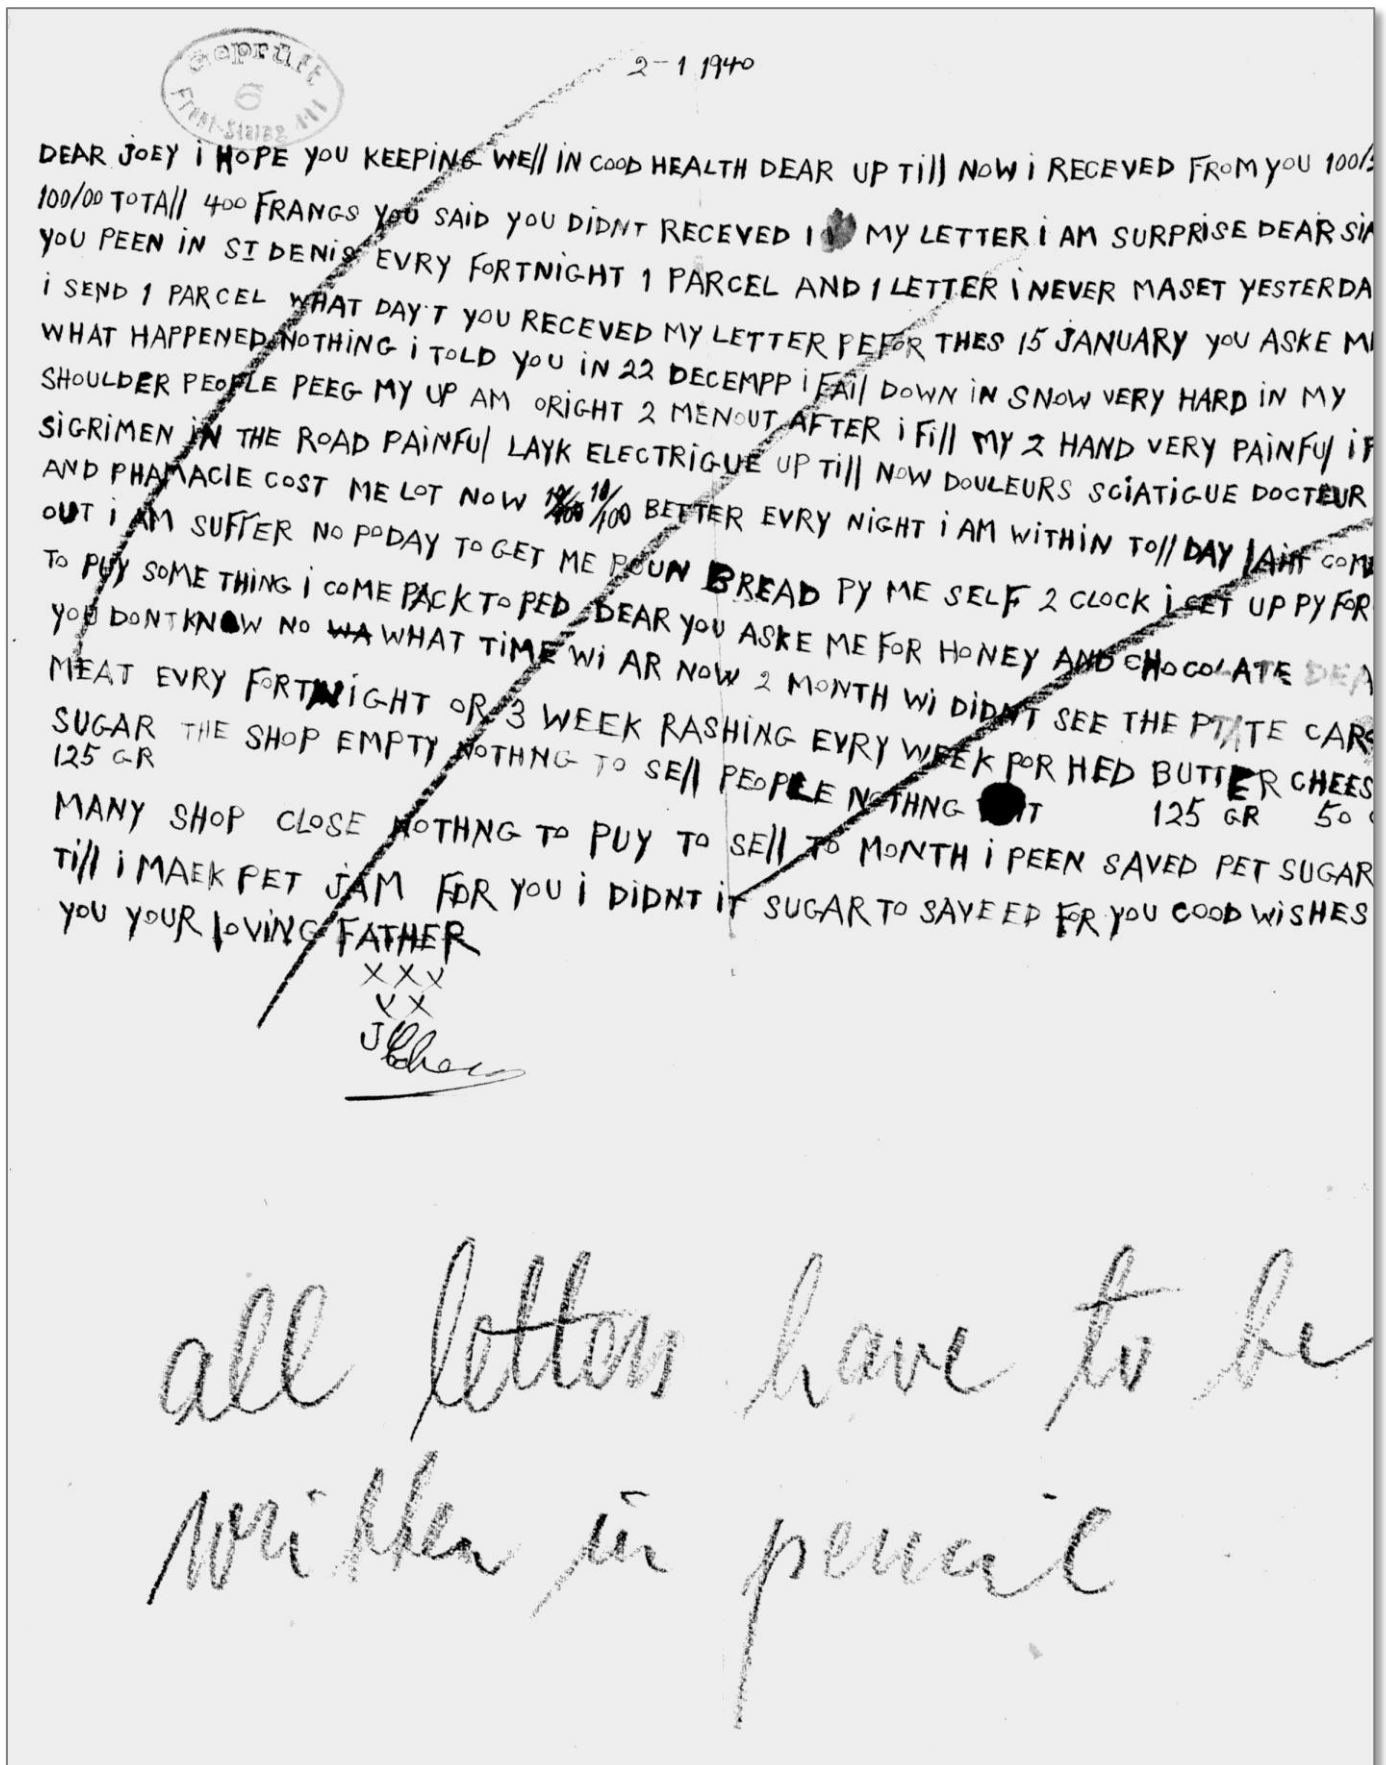 Geprüft
6
2-1 1940
DEAR JOEY i HOPE YOU KEEPING WEll IN COOD HEALTH DEAR UP Till NOW i RECEVED FROM YOU 100/
100/00 TOTAll 400 FRANGS YOU SAID YOU DIDNT RECEVED MY LETTER i AM SURPRISE DEAR
YOU PEEN IN ST DENIS EVRY FORTNIGHT 1 PARCEL AND 1 LETTER i NEVER MASET YESTERDA
i SEND 1 PARCEL WHAT DAY'T YOU RECEVED MY LETTER PEFOR THES 15 JANUARY YOU ASKE
WHAT HAPPENED NOTHING i TOLD YOU IN 22 DECEMPP i FAll DOWN IN SNOW VERY HARD IN MY
SHOULDER PEOPLE PEEG MY UP AM ORIGHT 2 MENOUT AFTER i Fill MY 2 HAND VERY PAINFUl
SIGRIMEN IN THE ROAD PAINFUl LAYK ELECTRIGUE UP Till NOW DOULEURS SCIATIGUE DOCTEUR
AND PHAMACIE COST ME LOT NOW 10/100 BETTER EVRY NIGHT i AM WITHIN TOll DAY
OUT i AM SUFFER NO PODAY TO GET ME POUN BREAD PY ME SELF 2 CLOCK i GET UP PY FOR
TO PUY SOME THING i COME PACK TO PED DEAR YOU ASKE ME FOR HONEY AND CHOCOLATE
YOU DONT KNOW NO WA WHAT TIME Wi AR NOW 2 MONTH Wi DIDNT SEE THE
MEAT EVRY FORTNIGHT OR 3 WEEK RASHING EVRY WEEK POR HED BUTTER CHEES
SUGAR THE SHOP EMPTY NOTHNG TO SEll PEOPLE NOTHNG
125 GR 125 GR 50
MANY SHOP CLOSE NOTHNG TO PUY TO SEll TO MONTH i PEEN SAVED PET SUGAR
Till i MAEK PET JAM FOR YOU i DIDNT iT SUGAR TO SAVEED FOR YOU COOD WISHES
YOU YOUR lOVING FATHER
XXX
XX
all letters have to be
written in pencil